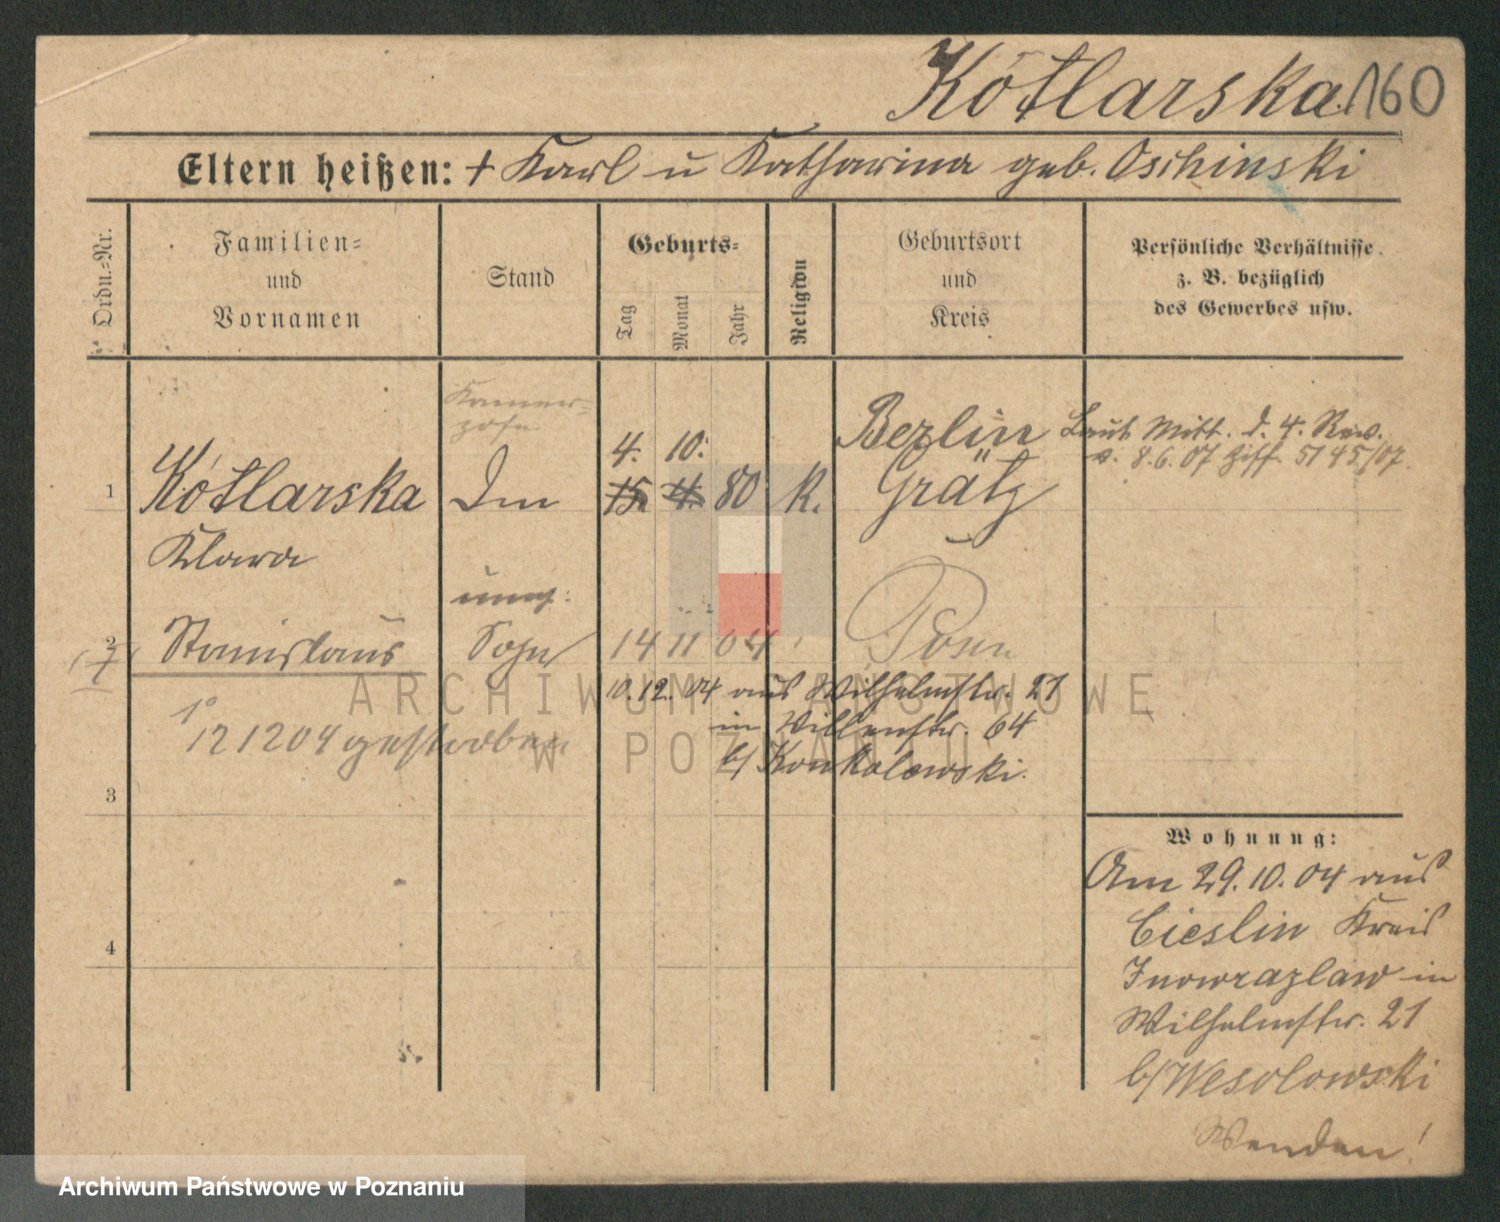 Kótlarska 160
Eltern heißen: + Karl u Katharina geb. Oschinski
Ordn.=Nr.
Familien=
und
Vornamen
Stand
Geburts=
Tag
Monat
Jahr
Religion
Geburtsort
und
Kreis
Persönliche Verhältnisse
z. B. bezüglich
des Gewerbes usw.
1
Kótlarska
Klara
4. 10.
15. 4. 80 K.
Berlin
Grätz
Laut Mitt. d. 4. Rev.
v. 8.6.07 Ziff. 5145/07
unehl.
2 Stanislaus Sohn 14 11 04 Posen
12 12 04 gestorben
10.12.04 aus Wilhelmstr. 21
in Villenstr. 64
b/ Konkolewski.
3
4
Wohnung:
Am 29.10.04 aus
Cieslin Kreis
Inowrazlaw in
Wilhelmstr. 21
b/ Wesolowski
Wenden!
ARCHIWUM PAŃSTWOWE
W POZNANIU
Archiwum Państwowe w Poznaniu